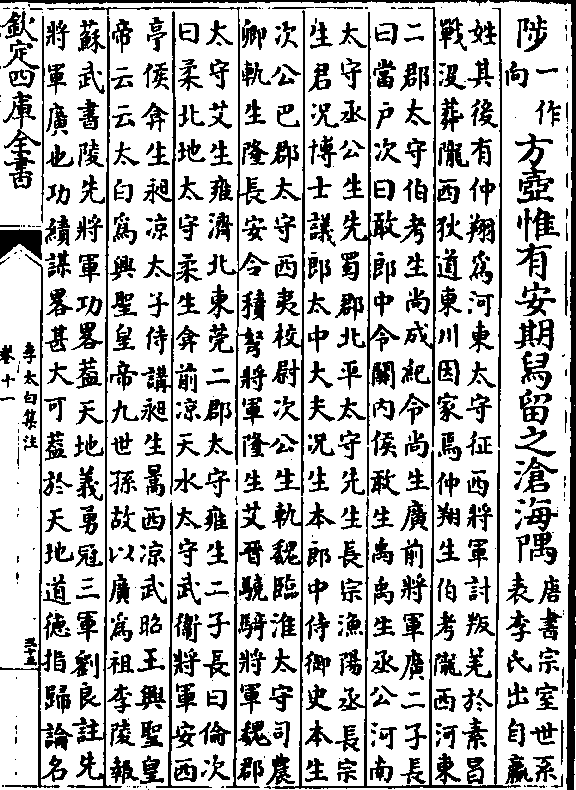 陟一作向方壺惟有安期舄留之滄海隅唐書宗室世系
表李氏出自嬴
姓其後有仲翔爲河東太守征西將軍討叛羌於素昌
戰沒葬隴西狄道東川因家焉仲翔生伯考隴西河東
二郡太守伯考生尚成紀令尚生廣前將軍廣二子長
曰當戶次曰敢郎中令關內侯敢生禹禹生丞公河南
太守丞公生先蜀郡北平太守先生長宗漁陽丞長宗
生君況博士議郎太中大夫況生本郎中侍御史本生
次公巴郡太守西夷校尉次公生軌魏臨淮太守司農
卿軌生隆長安令積弩將軍隆生艾晉驍騎將軍魏郡
太守艾生雍濟北東莞二郡太守雍生二子長曰倫次
曰柔北地太守柔生弇前凉天水太守武衛將軍安西
亭侯弇生昶凉太子侍講昶生暠西凉武昭王興聖皇
帝云云太白爲興聖皇帝九世孫故以廣爲祖李陵報
蘇武書陵先將軍功畧葢天地義勇冠三軍劉良註先
將軍廣也功績謀畧甚大可葢於天地道德指歸論名
欽定四庫全書
李太白集注
卷十一
三十五